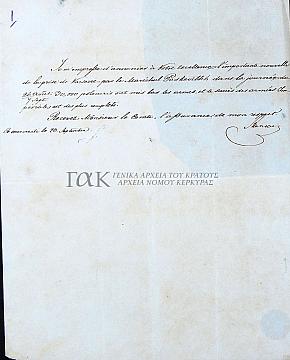 1
Je m'empresse d'annoncer à Votre Excellence l'importante nouvelle
de la prise de Varsovie par le Maréchal Paskevitch dans la journée du
26 Août
7 Sept. 30,000 polonais ont mis bas les armes, et le succès des armées Im-
périales est des plus complets.
Recevez, Monsieur le Comte, l'assurance de mon respect
Ce mercredi le 30 Septembre
ΓΑΚ ΓΕΝΙΚΑ ΑΡΧΕΙΑ ΤΟΥ ΚΡΑΤΟΥΣ
ΑΡΧΕΙΑ ΝΟΜΟΥ ΚΕΡΚΥΡΑΣ